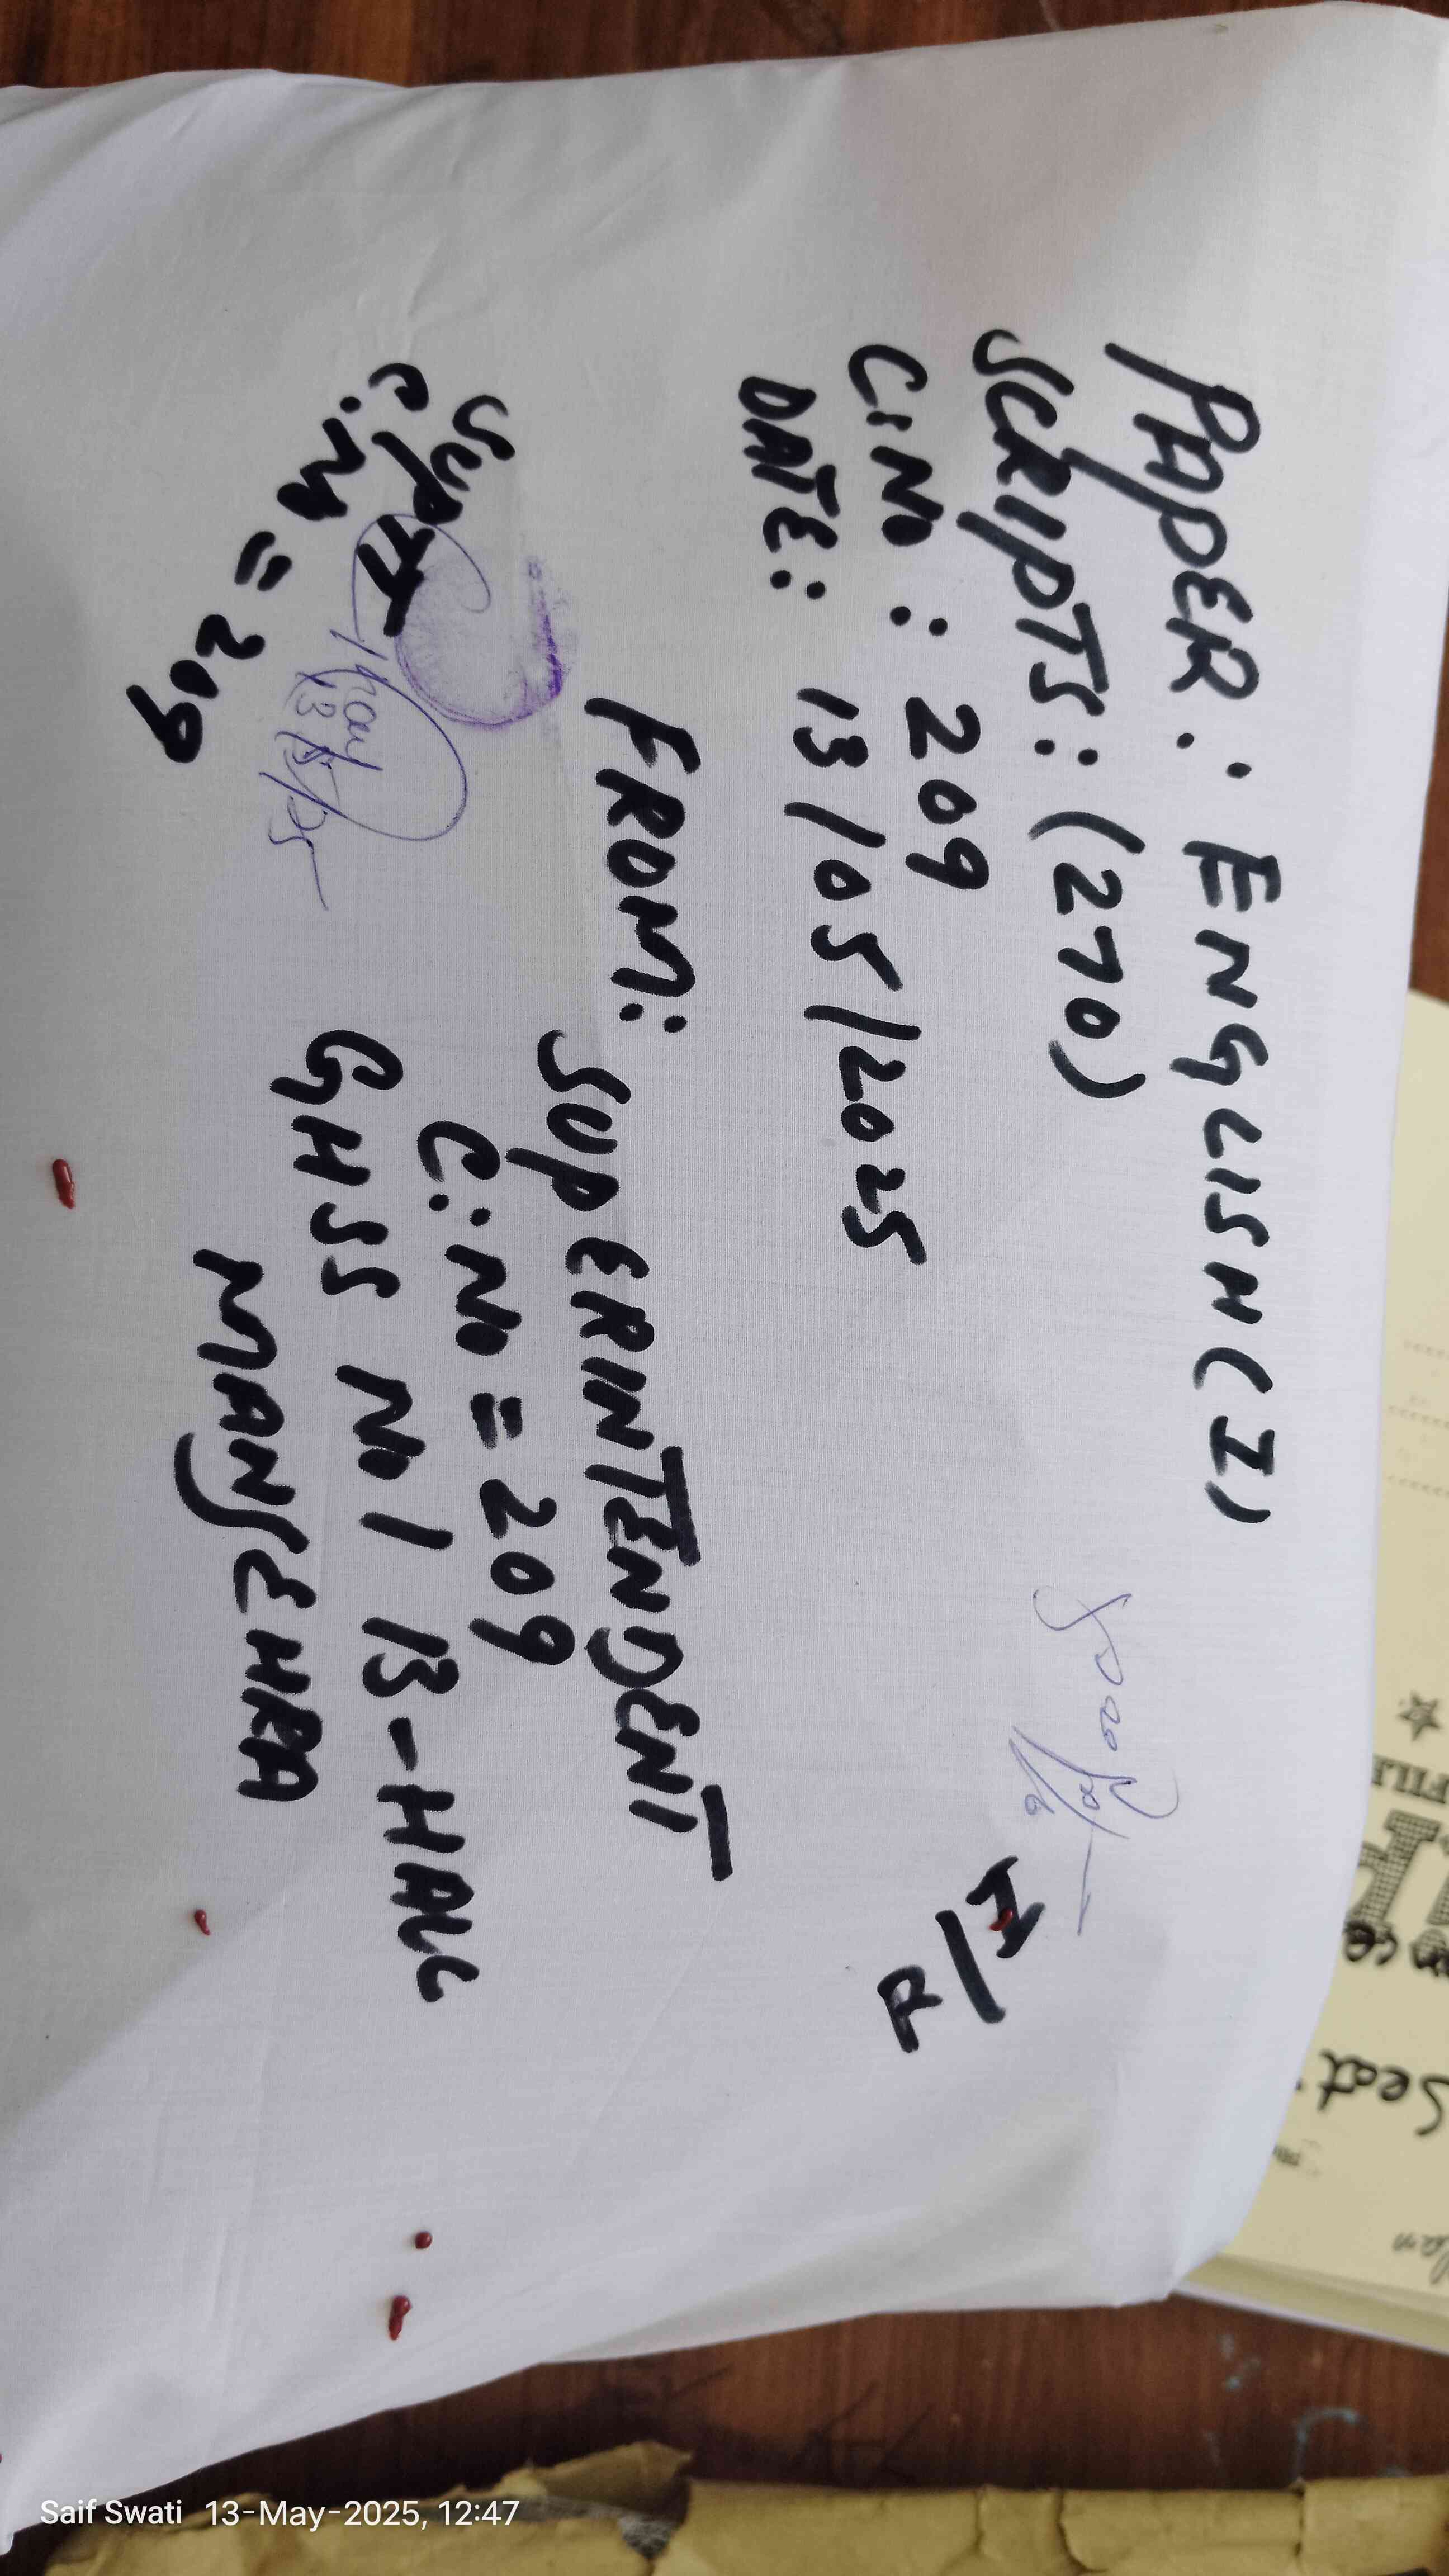 PAPER: ENGLISH (I)
SCRIPTS: (270)
C:No : 209
DATE: 13/05/2025
FROM: SUPERINTENDENT
C:No = 209
GHSS No 1 B-HALL
MANSEHRA
Supdtt
C.No = 209
13/5/25
Saif Swati 13-May-2025, 12:47